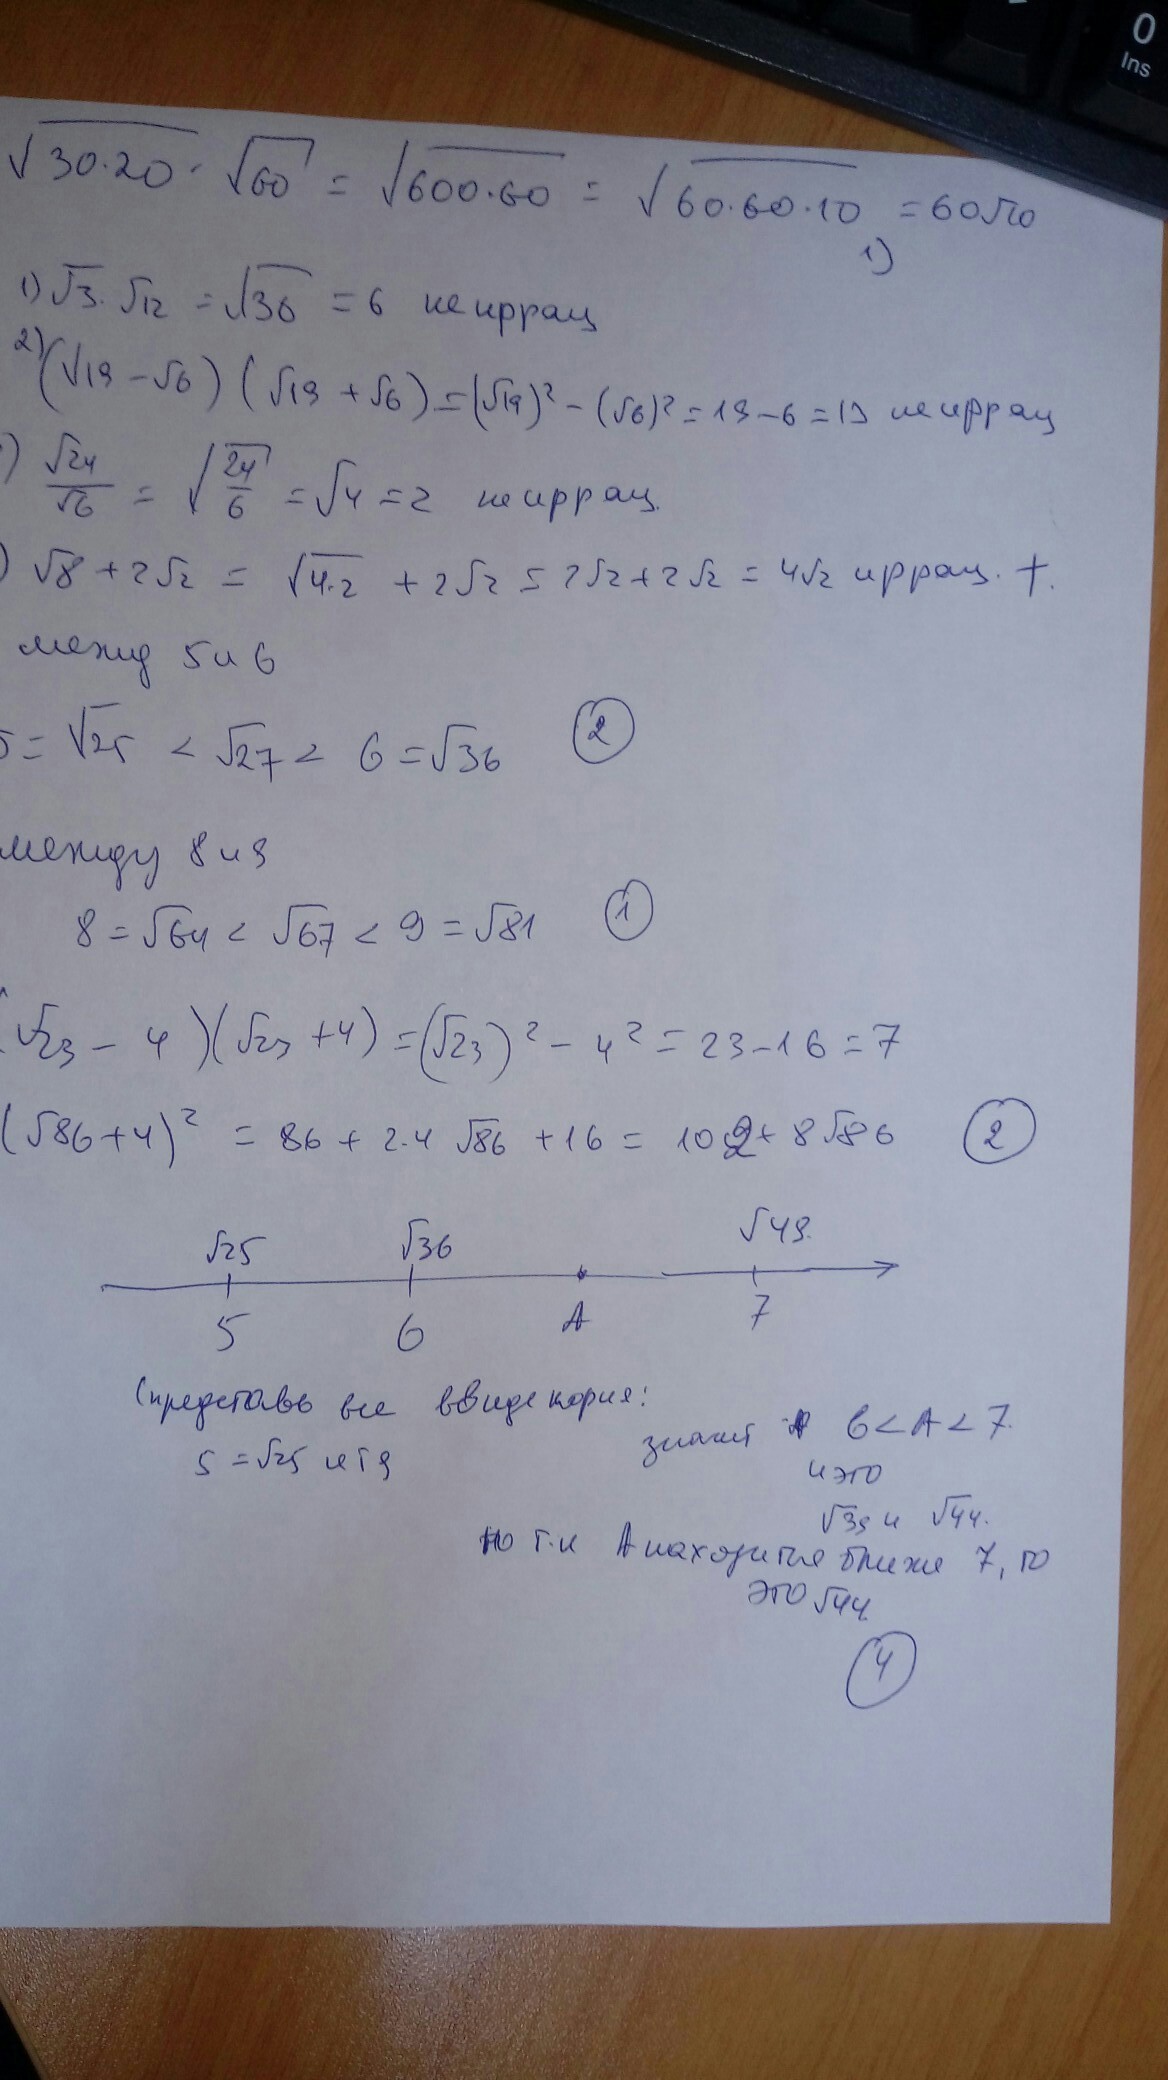 0
Ins
√30·20 · √60 = √600·60 = √60·60·10 = 60√10
1)
1) √3·√12 = √36 = 6 не иррац
2) (√19 - √6)(√19 + √6) = (√19)² - (√6)² = 19 - 6 = 13 не иррац
) √24/√6 = √24/6 = √4 = 2 не иррац.
) √8 + 2√2 = √4·2 + 2√2 = 2√2 + 2√2 = 4√2 иррац. +.
между 5 и 6
5 = √25 < √27 < 6 = √36 2
между 8 и 9
8 = √64 < √67 < 9 = √81 1
(√23 - 4)(√23 + 4) = (√23)² - 4² = 23 - 16 = 7
(√86 + 4)² = 86 + 2·4 √86 + 16 = 102 + 8√86 2
√25 √36 √49.
5 6 A 7
(представь все в виде корня:
5 = √25 и тд
значит 6 < A < 7.
и это
√39 и √44.
но т.к A находится ближе 7, то
это √44
4